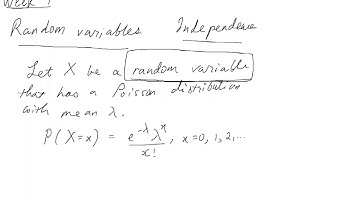 Week 1
Random variables Independence
Let X be a random variable
that has a Poisson distribution
with mean λ.
P(X=x) = e^{-λ} λ^x / x! , x=0, 1, 2, ...